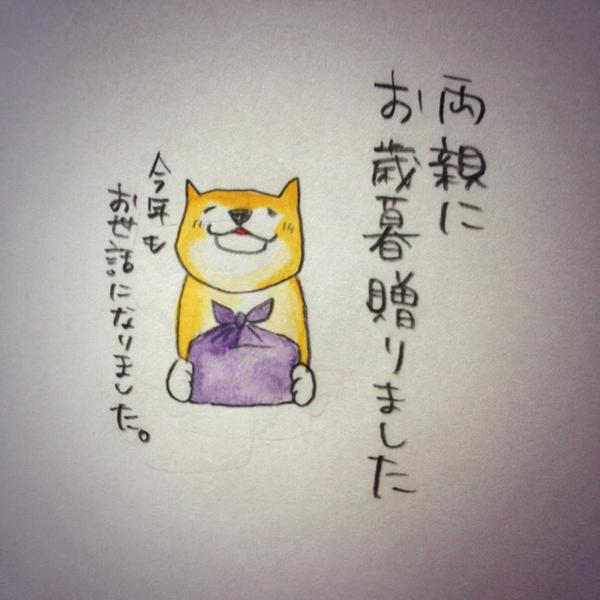 両親に
お歳暮贈りました
今年も
お世話になりました。